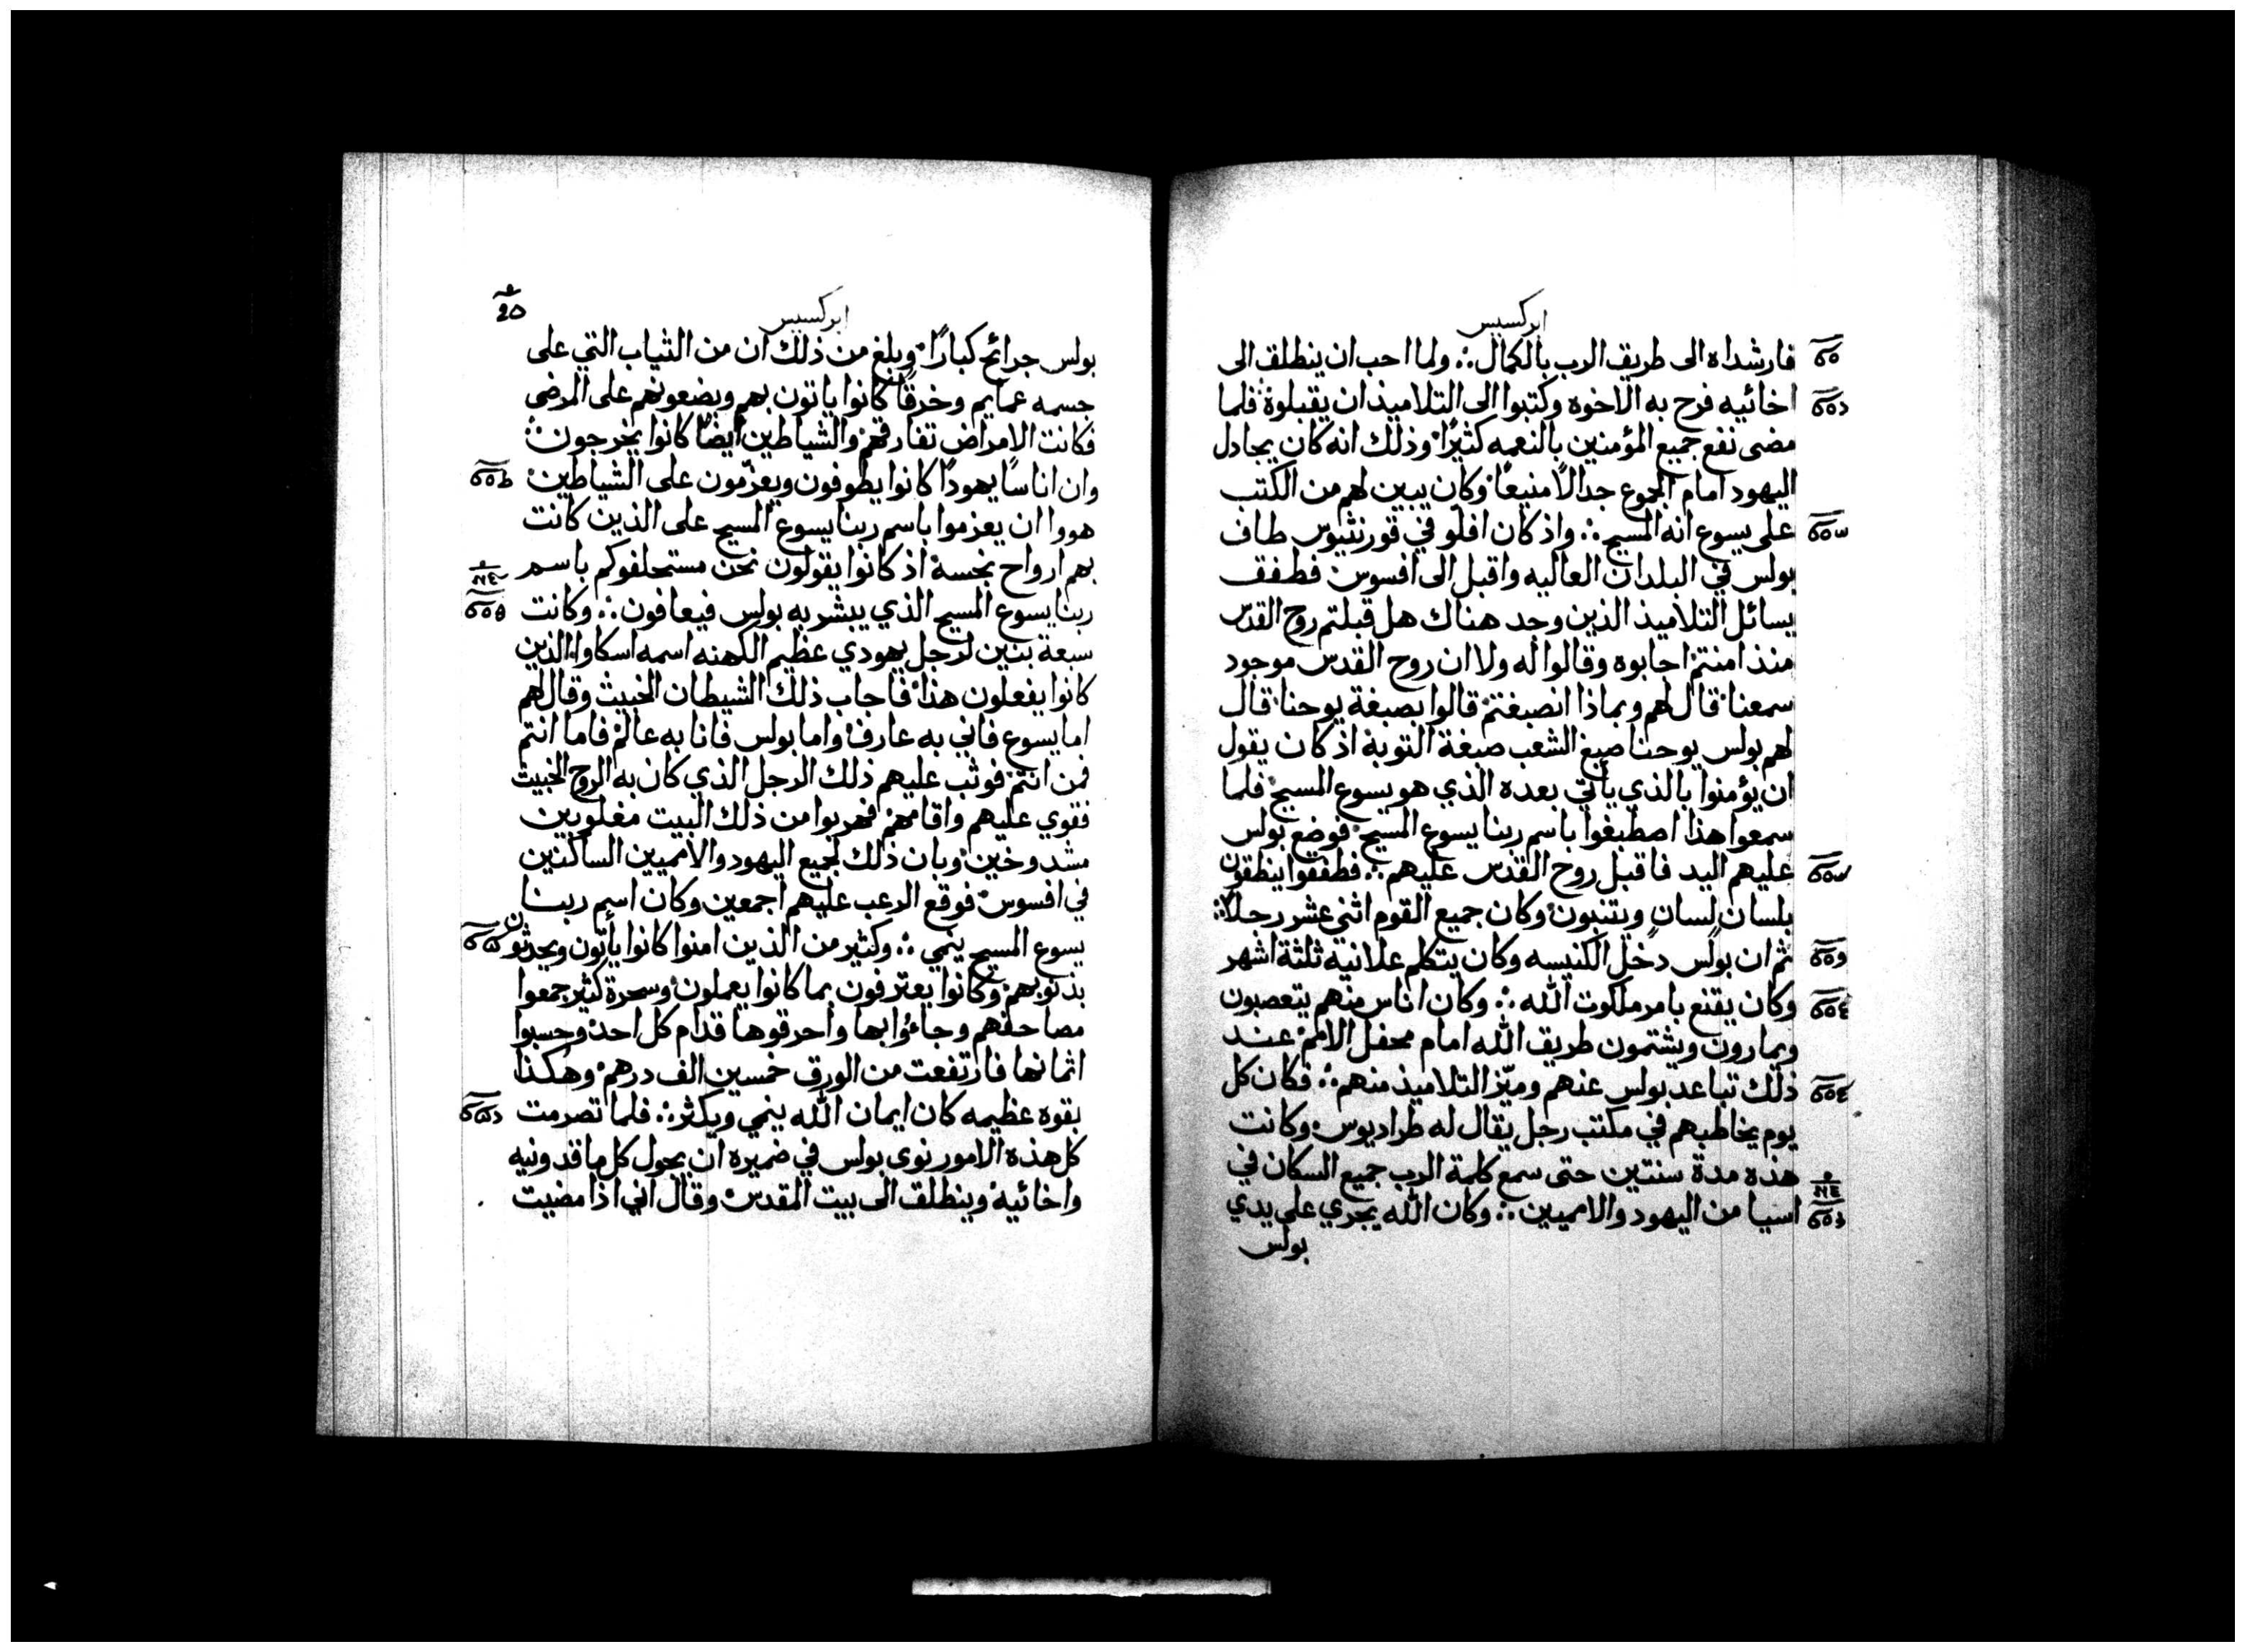 ابركسيس
فارشداه الى طريق الرب بالكمال ولما احب ان ينطلق الى
اخائيه فرح به الاخوه وكتبوا الى التلاميذ ان يقبلوة فلما
مضى نفع جميع المؤمنين بالنعمه كثيرًا وذلك انه كان يجادل
اليهود امام الجموع جدالًا منيعًا وكان يبين لهم من الكتب
على يسوع انه المسيح واذ كان افلو في قورنثيوس طاف
بولس في البلدان العاليه واقبل الى افسوس فطفق
يسائل التلاميذ الذين وجد هناك هل قبلتم روح القدس
منذ امنتم اجابوه وقالوا له ولا ان روح القدس موجود
سمعنا قال لهم وبماذا انصبغتم قالوا بصبغة يوحنا قال
لهم بولس يوحنا صبغ الشعب صبغة التوبة اذ كان يقول
ان يؤمنوا بالذي يأتي بعده الذي هو يسوع المسيح فلما
سمعوا هذا اصطبغوا باسم ربنا يسوع المسيح فوضع بولس
عليهم اليد فاقبل روح القدس عليهم فطفقوا ينطقون
بلسان لسان ويتنبون وكان جميع القوم اثني عشر رجلًا
ثم ان بولس دخل الكنيسه وكان يتكلم علانيه ثلثة اشهر
وكان يقنع بامر ملكوت الله وكان اناس منهم يتعصبون
ويمارون ويشتمون طريق الله امام محفل الامم عند
ذلك تباعد بولس عنهم وميّز التلاميذ منهم فكان كل
يوم يخاطبهم في مكتب رجل يقال له طراديوس وكانت
هذه مدة سنتين حتى سمع كلمة الرب جميع السكان في
اسيا من اليهود والامميين وكان الله يجري على يدي
بولس
ابركسيس
بولس جرائح كبارًا وبلغ من ذلك ان من الثياب التي على
جسمه عمايم وخرقًا كانوا ياتون بهم ويضعونهم على المرضى
فكانت الامراض تفارقهم والشياطين أيضًا كانوا يخرجون
وان اناسًا يهودًا كانوا يطوفون ويعزّمون على الشياطين
هووا ان يعزموا باسم ربنا يسوع المسيح على الذين كانت
بهم ارواح نجسة اذ كانوا يقولون نحن مستحلفوكم باسم
ربنا يسوع المسيح الذي يبشر به بولس فيعافون وكانت
سبعة بنين لرجل يهودي عظيم الكهنه اسمه اسكاوا الذين
كانوا يفعلون هذا فاجاب ذلك الشيطان الخبيث وقال لهم
اما يسوع فاني به عارف واما بولس فانا به عالم فاما انتم
فمن انتم فوثب عليهم ذلك الرجل الذي كان به الروح الخبيث
فقوي عليهم واقامهم فهربوا من ذلك البيت مغلوبين
مشدوخين وبان ذلك لجميع اليهود والامميين الساكنين
في افسوس فوقع الرعب عليهم اجمعين وكان اسم ربنا
يسوع المسيح ينمي وكثير من الذين امنوا كانوا يأتون ويحدثون
بذنوبهم وكانوا يعترفون بما كانوا يعملون وسحرة كثير جمعوا
مصاحفهم وجاءوا بها واحرقوها قدام كل احد وحسبوا
اثمانها فارتفعت من الورق خمسين الف درهم وهكذا
بقوه عظيمه كان ايمان الله ينمي ويكثر فلما تصرمت
كل هذه الامور نوى بولس في ضميره ان يحول كل ماقدونيه
واخائيه وينطلق الى بيت المقدس وقال اني اذا مضيت